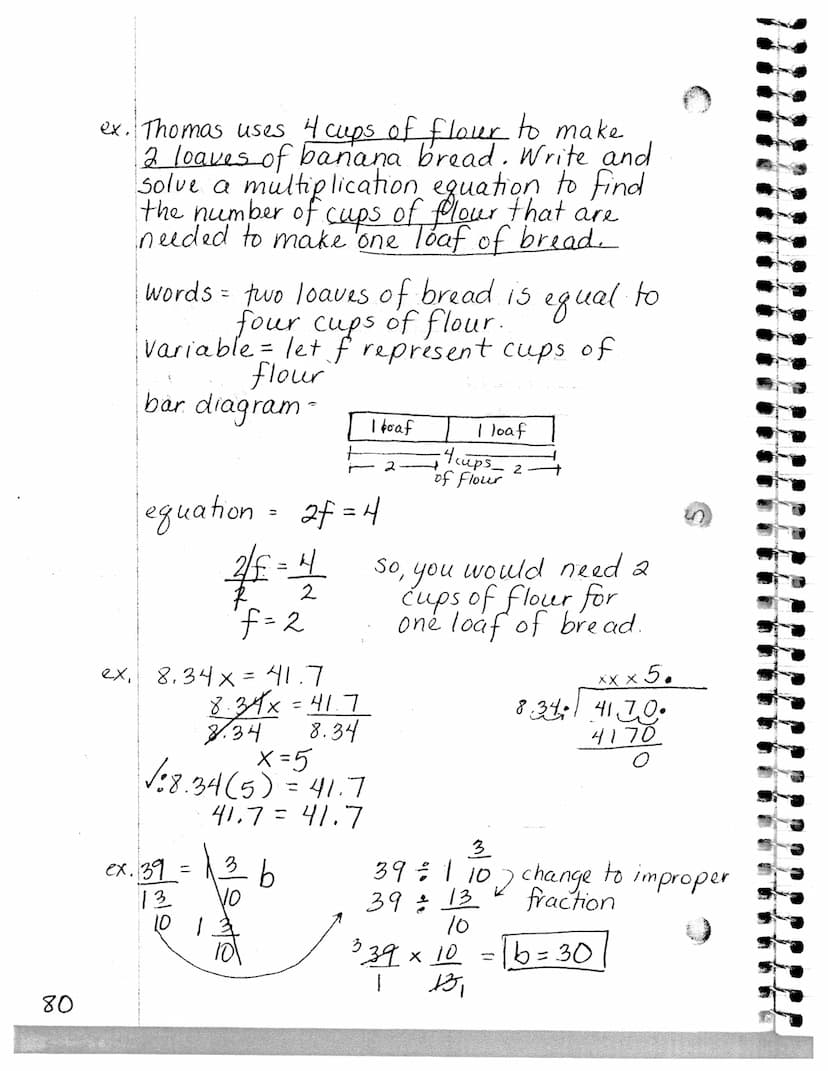 ex. Thomas uses 4 cups of flour to make
2 loaves of banana bread. Write and
solve a multiplication equation to find
the number of cups of flour that are
needed to make one loaf of bread.
words = two loaves of bread is equal to
four cups of flour.
Variable = let f represent cups of
flour
bar diagram =
1 loaf 1 loaf
4 cups
2 2
of flour
equation = 2f = 4
2f = 4
2 2
f = 2
so, you would need 2
cups of flour for
one loaf of bread.
ex. 8.34x = 41.7
8.34x = 41.7
8.34 8.34
x = 5
√: 8.34(5) = 41.7
41.7 = 41.7
xx x 5.
8.34. 41.70.
4170
0
ex. 39 = 1 3/10 b
1 3/10 1 3/10
39 ÷ 1 3/10 change to improper
39 ÷ 13/10 fraction
3 39/1 × 10/13 1 = b = 30
80